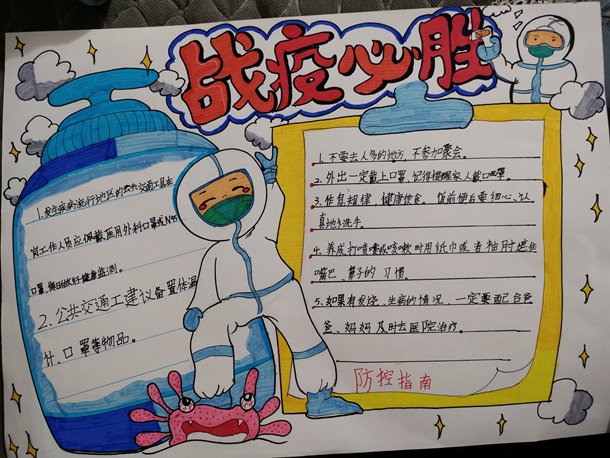 战疫必胜
1、发生疾病流行地区的公共交通工具在
岗工作人员应佩戴医用外科口罩或N95
口罩，每日做好健康监测。
2、公共交通工建议备置体温
计、口罩等物品。
1、不要去人多的地方，不参加聚会。
2、外出一定戴上口罩，记得提醒家人戴口罩。
3、作息规律，健康饮食。饭前便后要细心、认
真地洗手。
4、养成打喷嚏或咳嗽时用纸巾或者袖肘遮住
嘴巴、鼻子的习惯。
5、如果有发烧、生病的情况，一定要配合爸
爸、妈妈及时去医院治疗。
防控指南